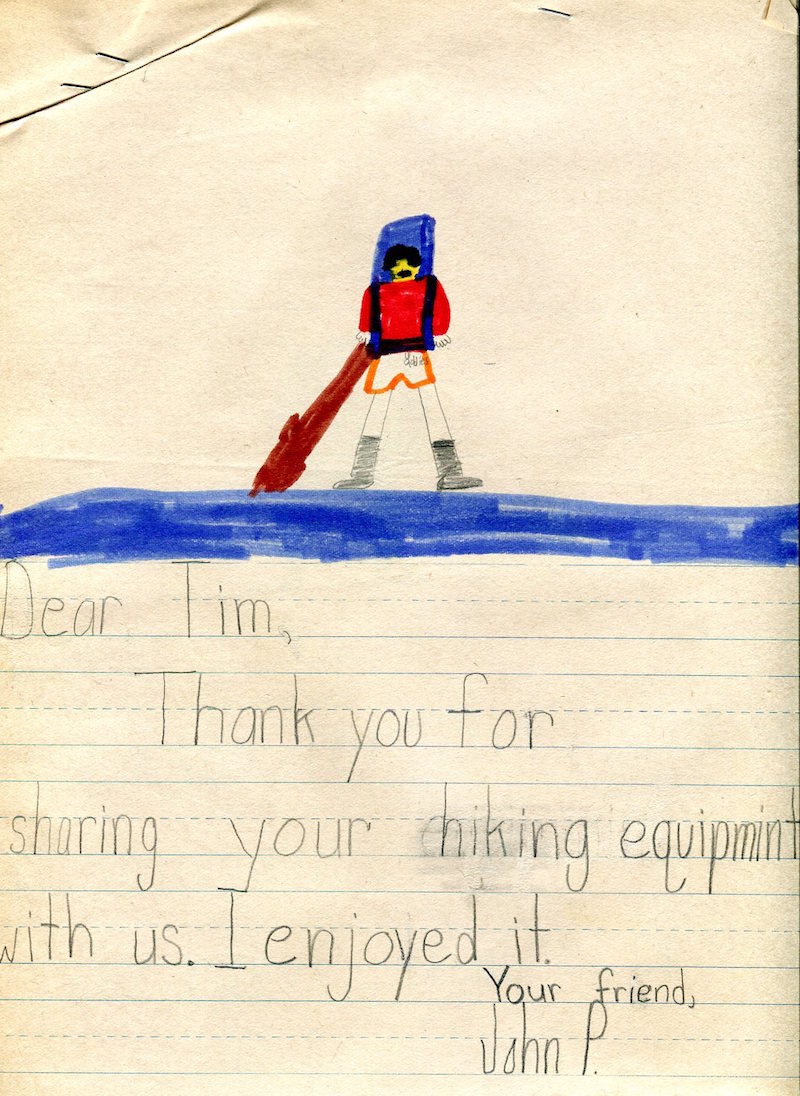 Dear Tim,
Thank you for
sharing your hiking equipmint
with us. I enjoyed it.
Your friend,
John P.